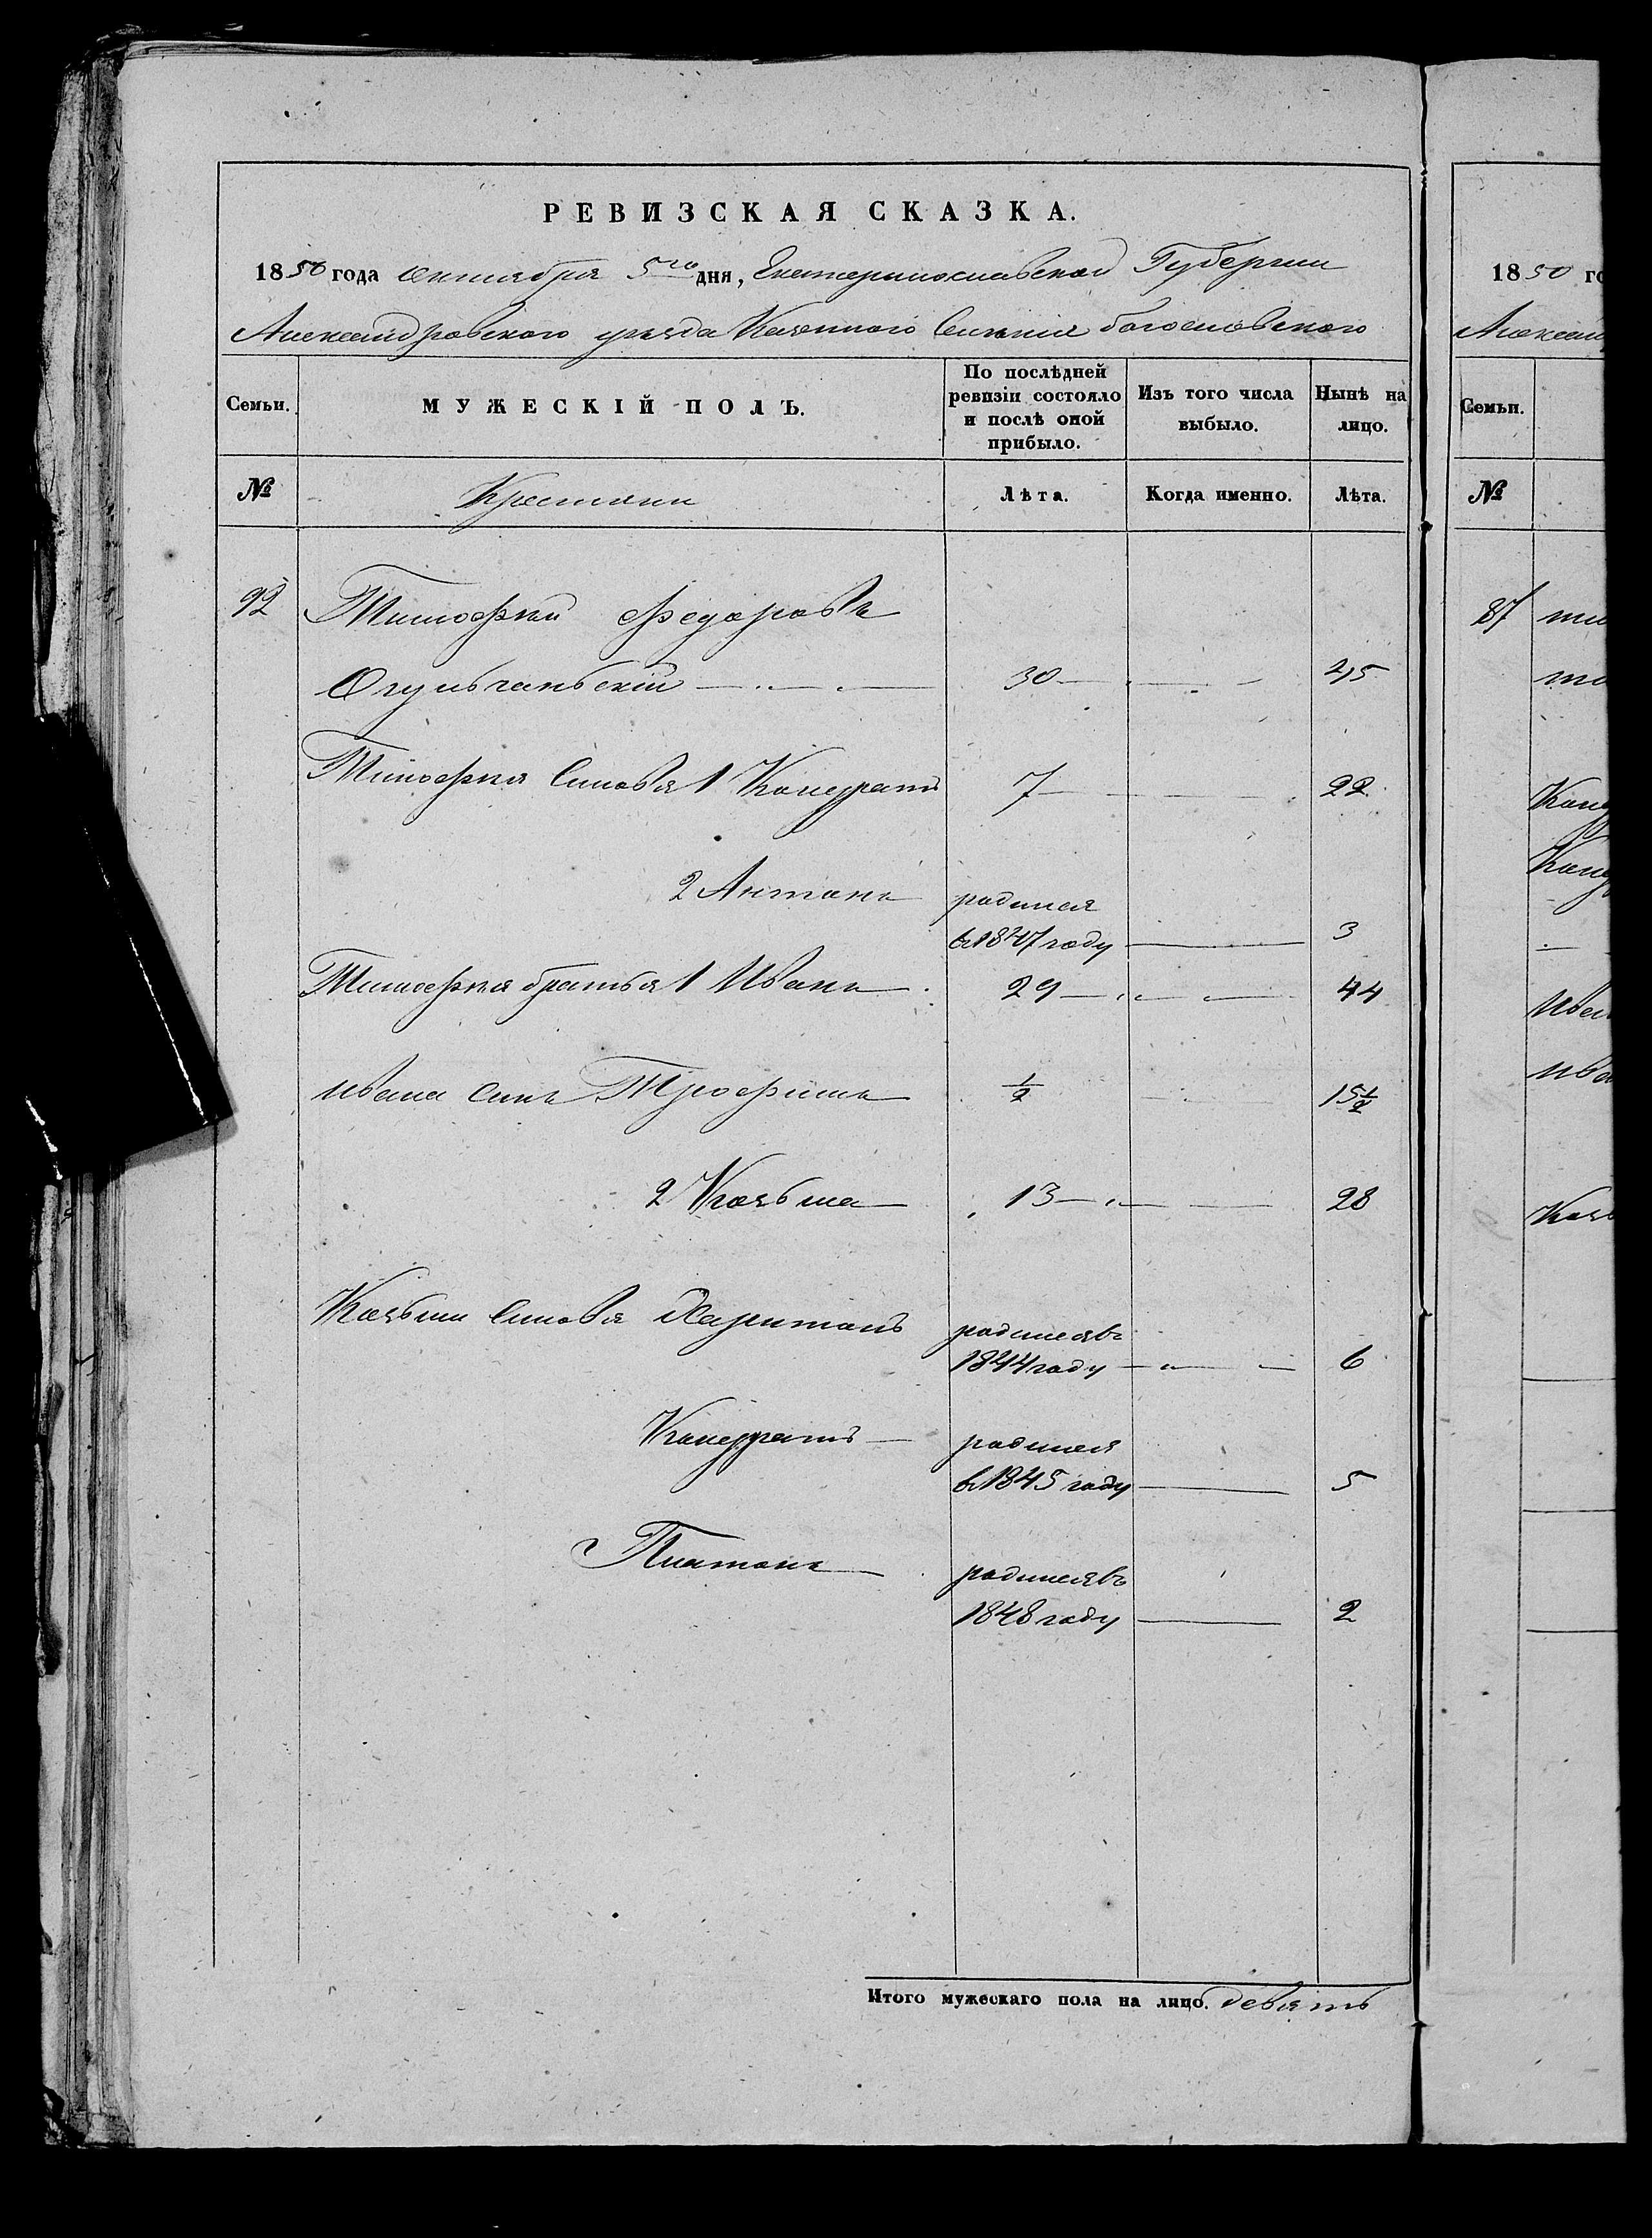 РЕВИЗСКАЯ СКАЗКА.
1850 года октября 5го дня, Екатеринославской Губернии
Александровского уезда Казенного Селенія богословского
Семьи.
МУЖЕСКІЙ ПОЛЪ.
По послѣдней ревизіи состояло и послѣ оной прибыло.
Изъ того числа выбыло.
Нынѣ на лицо.
№
Крестяни
Лѣта.
Когда именно.
Лѣта.
92 Тимофей Федоровъ
Огульчаньскій 30 45
Тимофея Синовя 1 Кондратъ 7 22
2 Антонъ родился
въ 1847 году 3
Тимофея братья 1 Иванъ 29 44
Ивана Синъ Трофимъ ½ 15½
2 Козьма 13 28
Козьми Синовя Харитонъ родился въ
1844 году 6
Кондратъ родился
въ 1845 году 5
Платонъ родился въ
1848 году 2
Итого мужескаго пола на лицо. девять
1850 го
Александ
Семьи.
№
87 ти
Конд
Конд
Иван
Ива
Козь